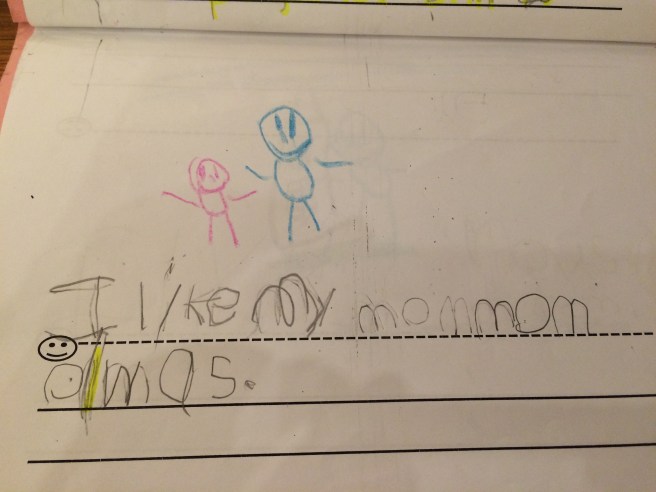 I like my mommom
olmas.